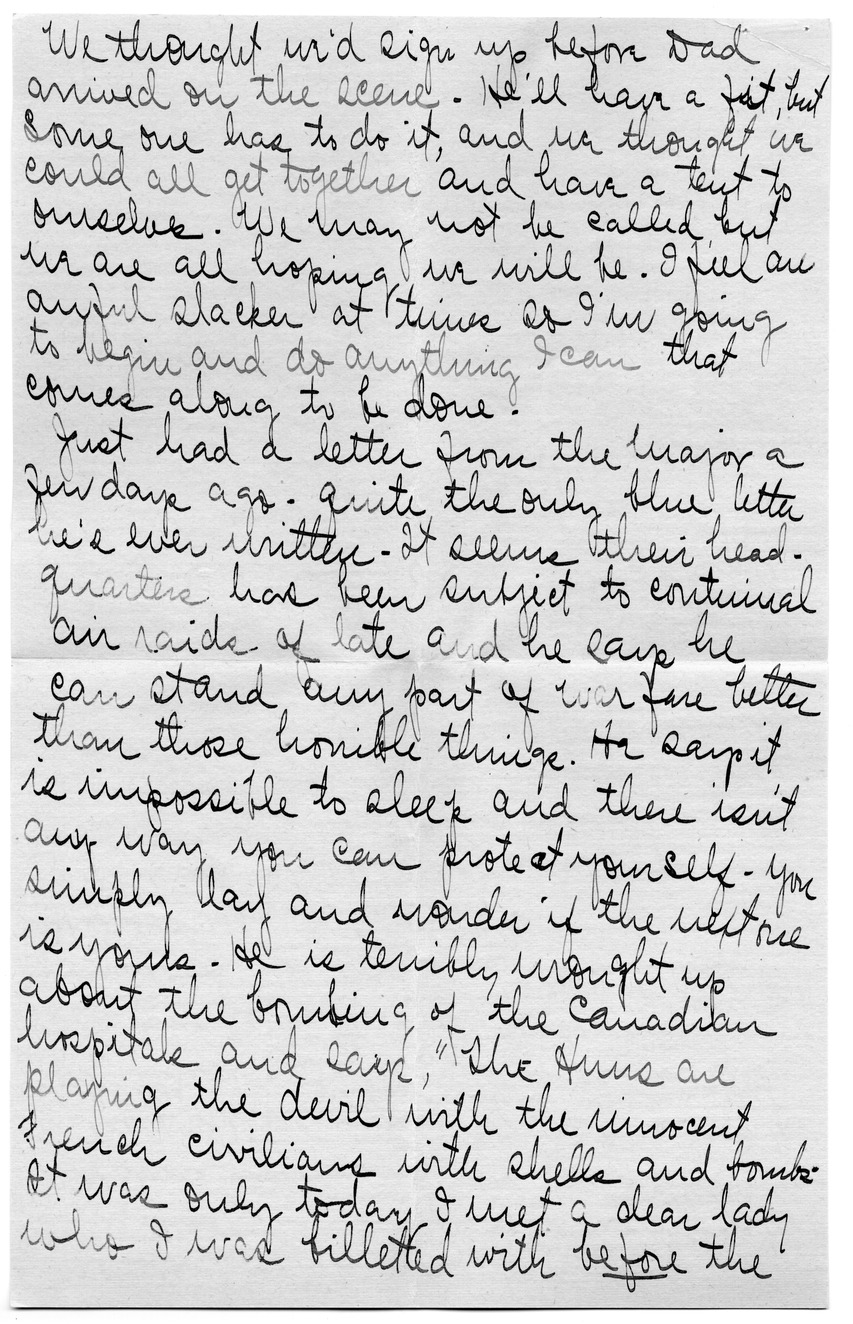 We thought we'd sign up before Dad
arrived on the scene. He'll have a fit, but
some one has to do it, and we thought we
could all get together and have a tent to
ourselves. We may not be called, but
we are all hoping we will be. I feel an
awful slacker at times so I'm going
to begin and do anything I can that
comes along to be done.
Just had a letter from the Major a
few days ago - quite the only blue letter
he's ever written - It seems their head-
quarters has been subject to continual
air raids of late and he says he
can stand any part of warfare better
than those horrible things. He says it
is impossible to sleep and there isn't
any way you can protect yourself - you
simply lay and wonder if the next one
is yours. He is terribly wrought up
about the bombing of the Canadian
hospitals and says, "The Huns are
playing the devil with the innocent
French civilians with shells and bombs-
It was only today I met a dear lady
who I was billetted with before the